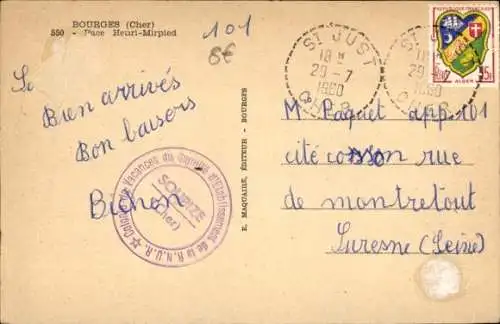 BOURGES (Cher)
550 - Place Henri-Mirpied
101
8€
Bien arrivés
Bon baisers
Bichon
E. MAQUAIRE, ÉDITEUR - BOURGES
Colonie de Vacances du Comité d'Etablissement de la R.N.U.R.
SOULZE
(Cher)
ST JUST
18 H
29-7
1960
CHER
ST JUST
18
29
1960
CHER
REPUBLIQUE FRANÇAISE
ALGER
15f
M Paquet app 101
cité
rue
de montretout
Suresne (Seine)